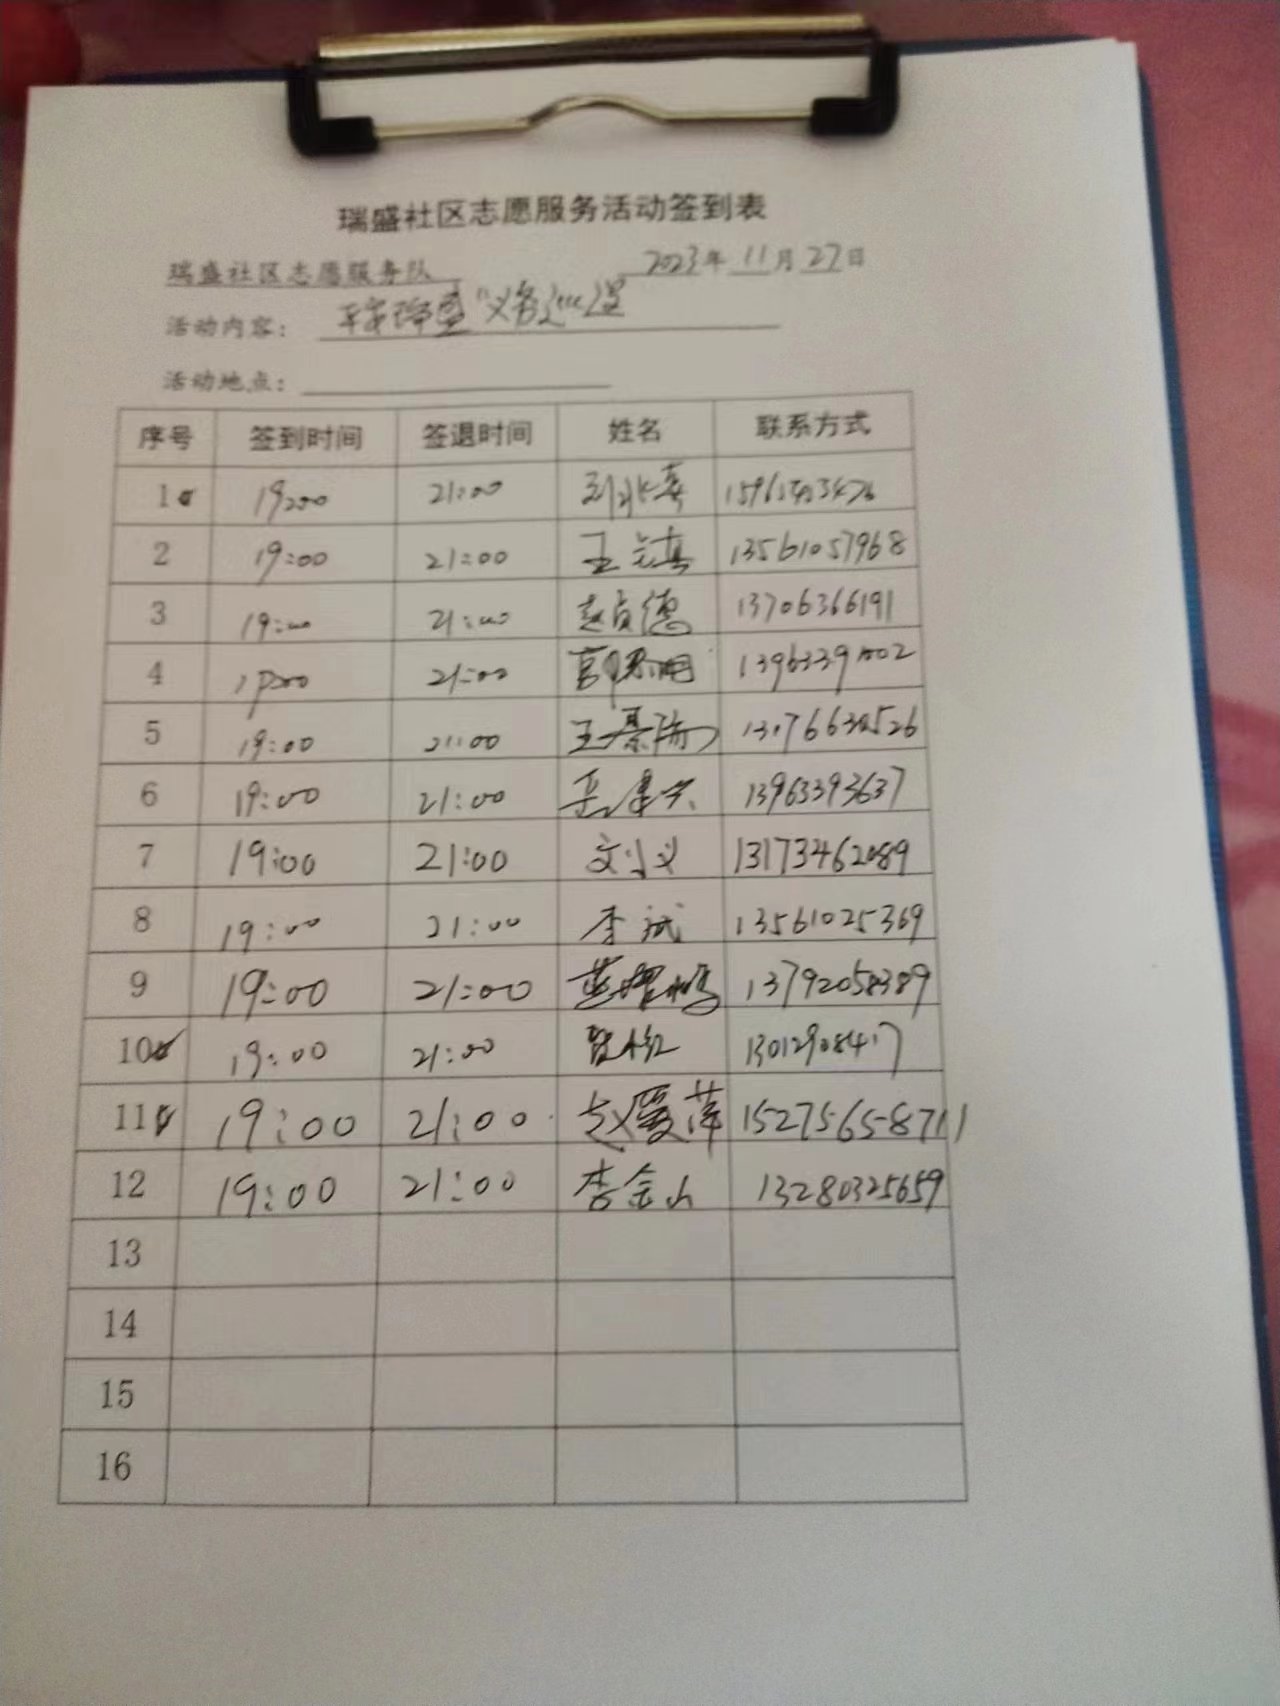 瑞盛社区志愿服务活动签到表
瑞盛社区志愿服务队 2023年 11月 27日
活动内容： 义务巡逻
活动地点：
序号 签到时间 签退时间 姓名 联系方式
1 19:00 21:00
2 19:00 21:00 王 13561057968
3 19:00 21:00 赵贞德 13706366191
4 19:00 21:00 13963391002
5 19:00 21:00 王
6 19:00 21:00 13963393637
7 19:00 21:00 13173462089
8 19:00 21:00 李斌 13561025369
9 19:00 21:00 13792058389
10 19:00 21:00
11 19:00 21:00 赵爱萍 15275658711
12 19:00 21:00 李金山 13280325659
13
14
15
16